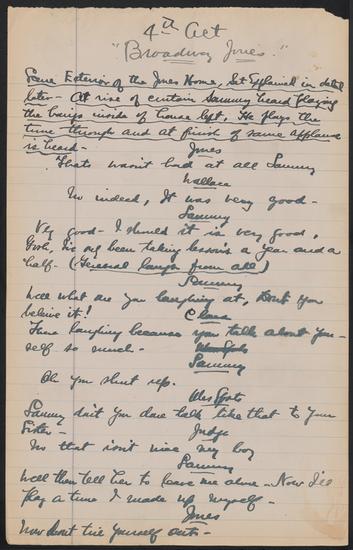 4th Act
"Broadway Jones."
Scene Exterior of the Jones Home, Set Explained in detail
later - At rise of curtain Sammy heard playing
the banjo inside of house left, He plays the
tune through and at finish of same applause
is heard -
Jones
Thats wasn't bad at all Sammy
Wallace
No indeed, It was very good -
Sammy
Very good - I should it is very good,
Gosh, I've only been taking lessons a year and a
half - (General laugh from all)
Sammy
Well what are you laughing at, Dont you
believe it!
Clara
I'me laughing because you talk about your-
self so much -
Sammy
Oh you shut up.
Mrs Spots
Sammy don't you dare talk like that to your
Sister -
Judge
No that isn't nice my boy
Sammy
Well then tell her to leave me alone - Now I'll
play a tune I made up myself -
Jones
Now dont tire yourself out -